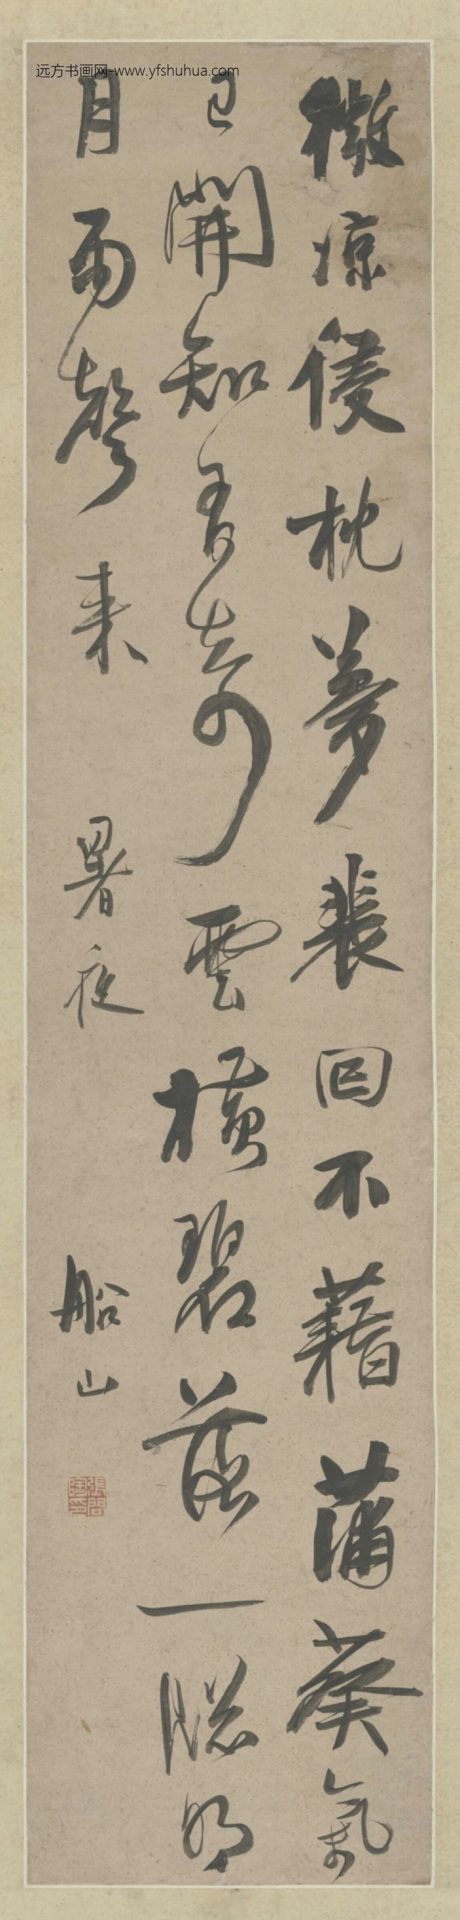 远方书画网-www.yfshuhua.com
微涼侵枕夢裴回不藉蒲葵氣
已開知有奇雲橫碧落一牕明
月雨聲來 暑夜
船山
張問陶印